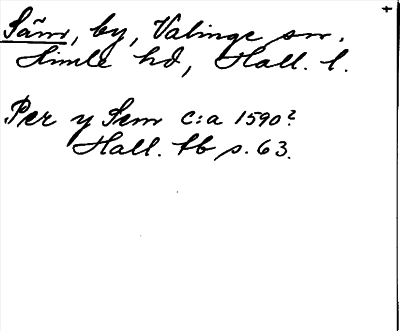 Säm, by, Valinge sn.
Himle hd, Hall. l.
Per y Sem c:a 1590?
Hall. tb s. 63.